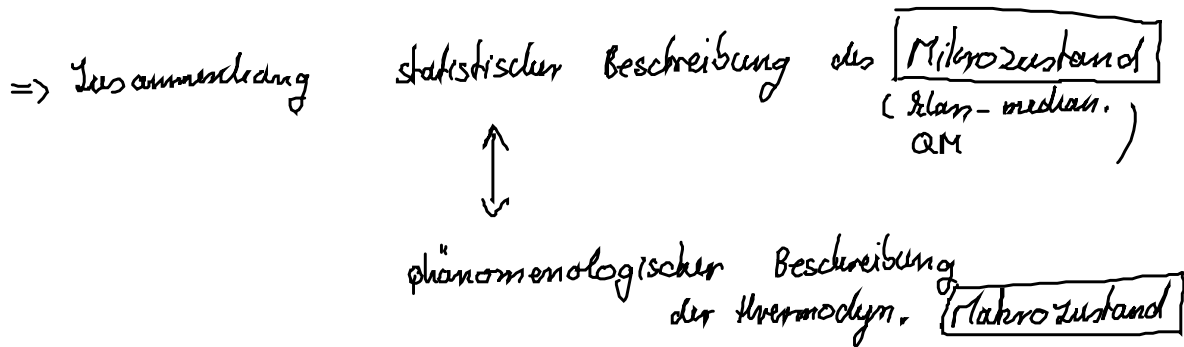 => Zusammenhang statistischer Beschreibung des Mikrozustand
(klass-mechan.
QM )
↕
phänomenologischer Beschreibung
der thermodyn. Makrozustand